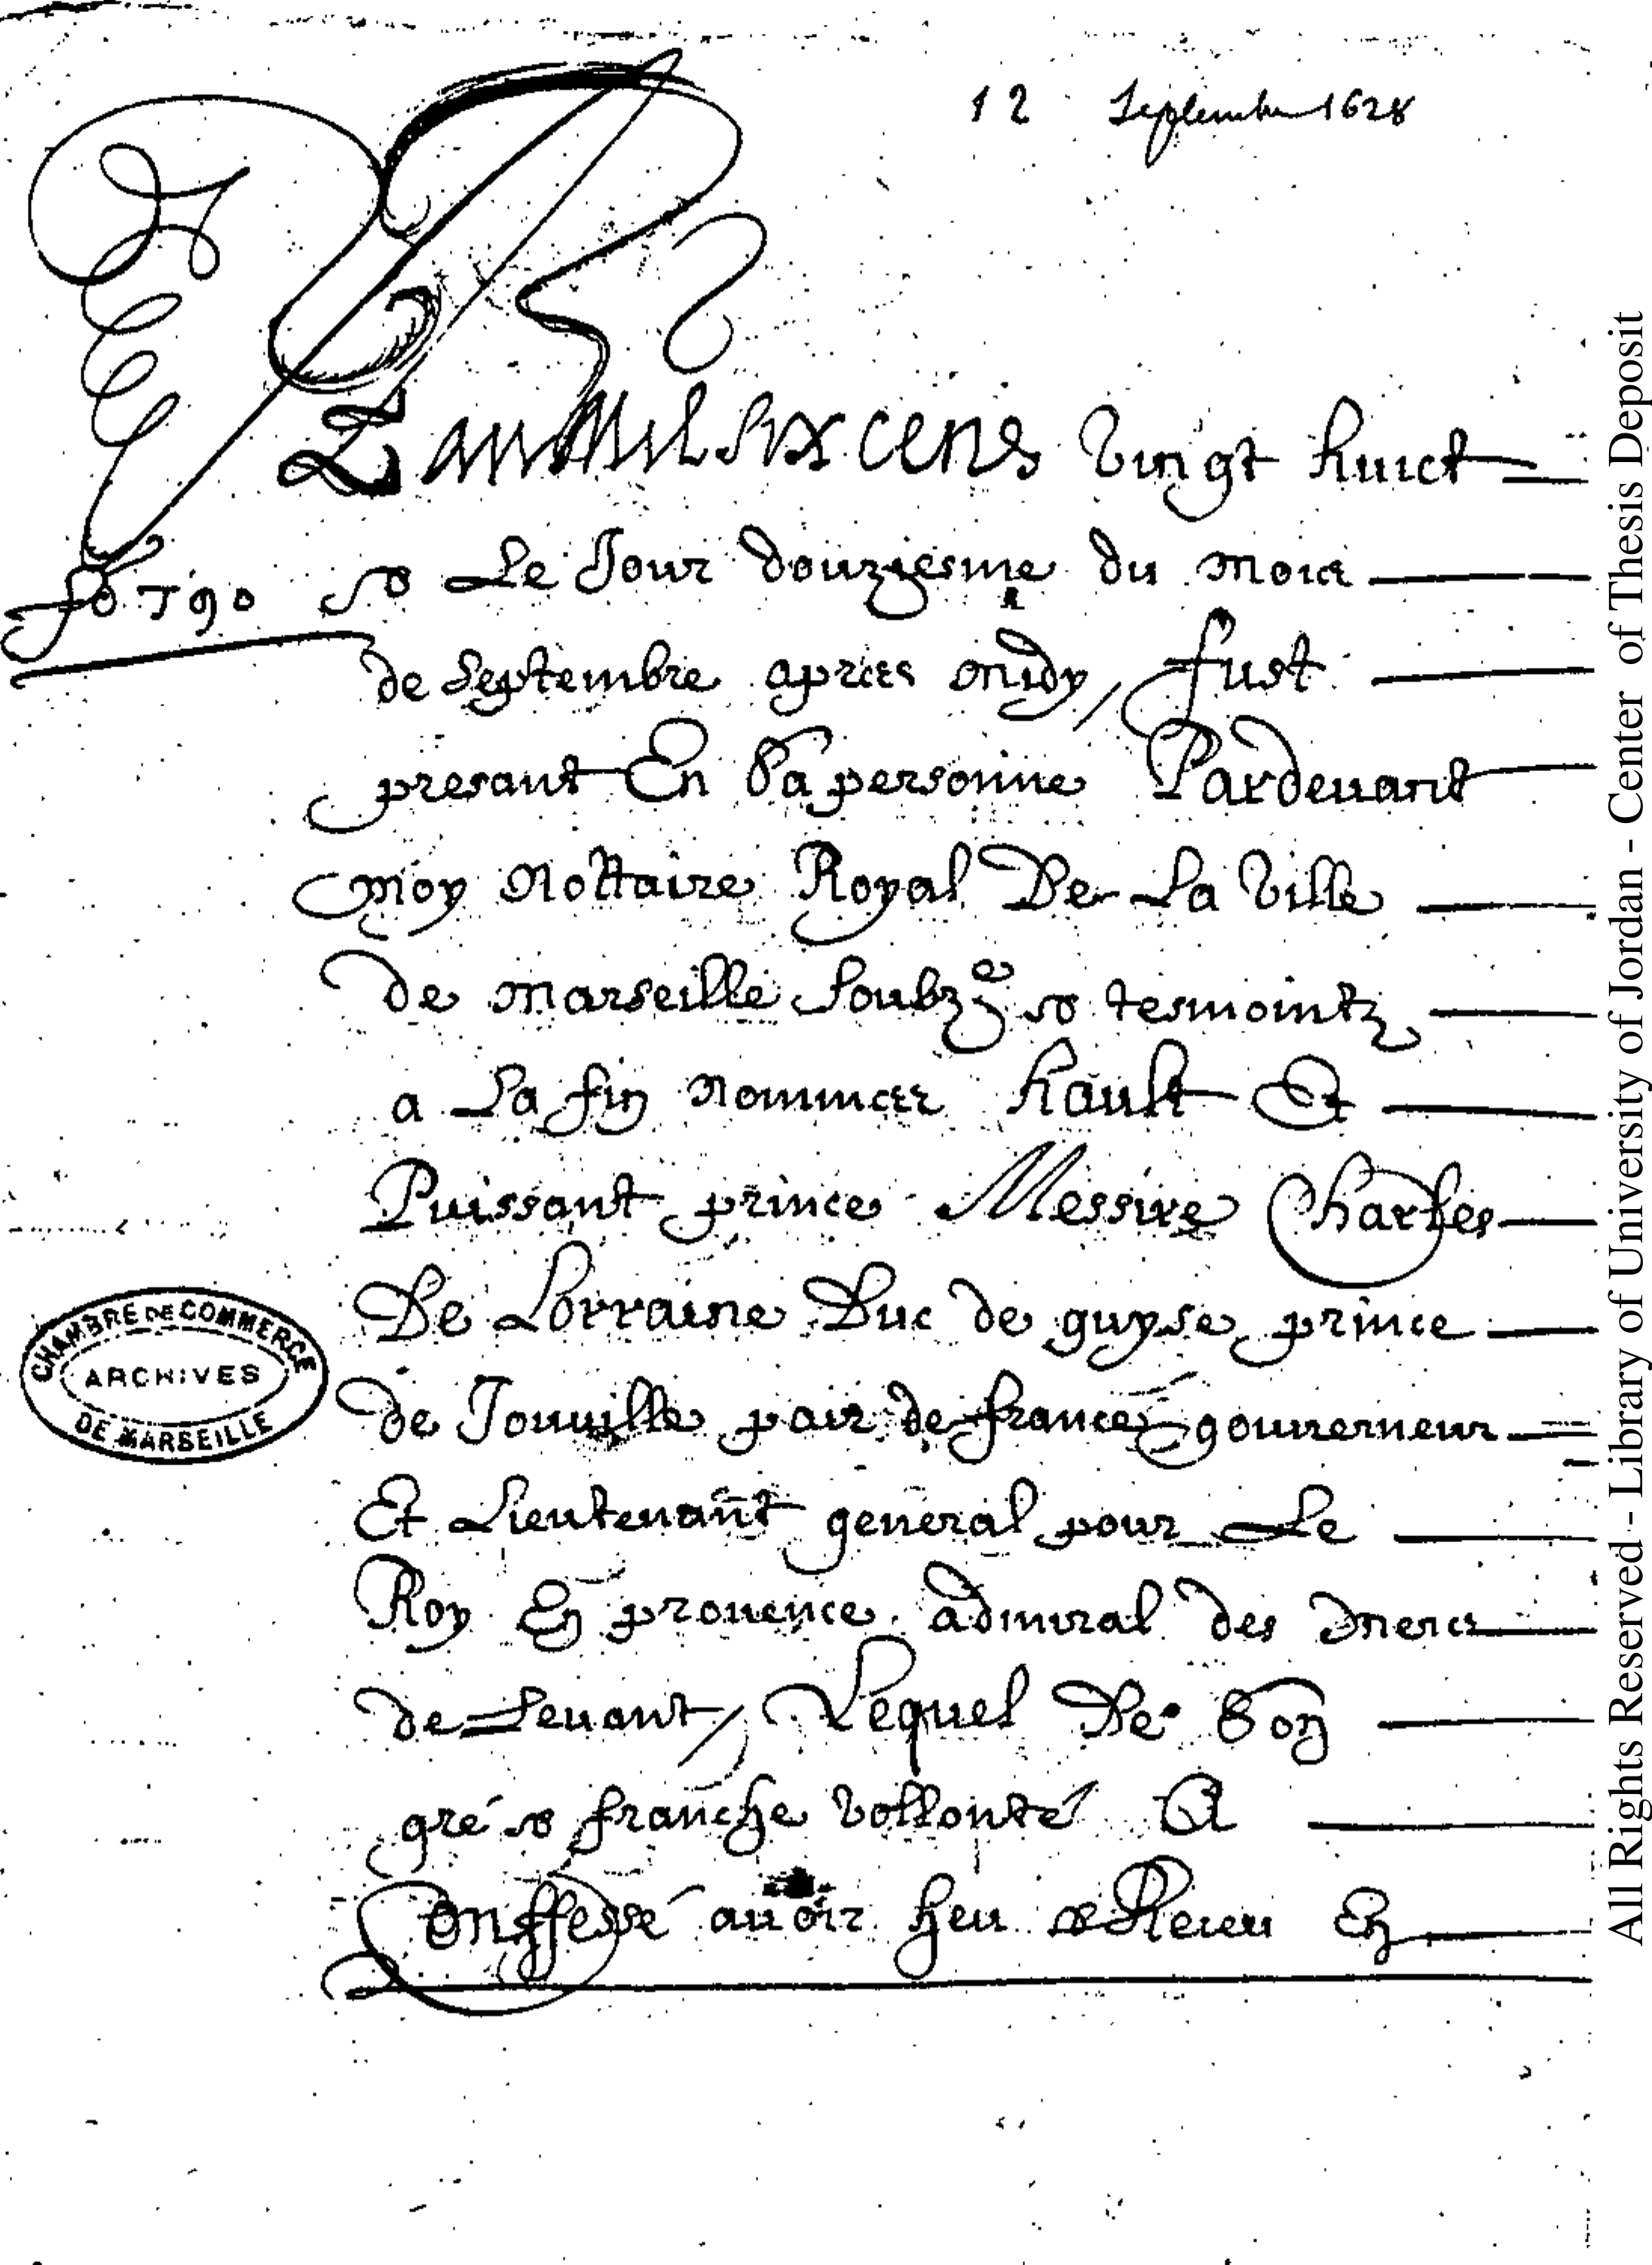 12 Septembre 1628
L'an Mil Six cens vingt huict
fo 790
& Le Jour douziesme du mois
de Septembre apres midy, fust
presant En Sa personne Pardevant
moy Nottaire Royal De La ville
de Marseille soubz.é & tesmointz
a La fin nommes hault Et
Puissant prince Messire Charles
De Lorraine Duc de guyse prince
de Jonville pair de france gouverneur
Et Lieutenant general pour Le
Roy En provence admiral des mers
de Levant, Lequel De Son
gré & franche vollonté A
Conffessé avoir heu & Receu En
CHAMBRE DE COMMERCE
ARCHIVES
DE MARSEILLE
All Rights Reserved - Library of University of Jordan - Center of Thesis Deposit